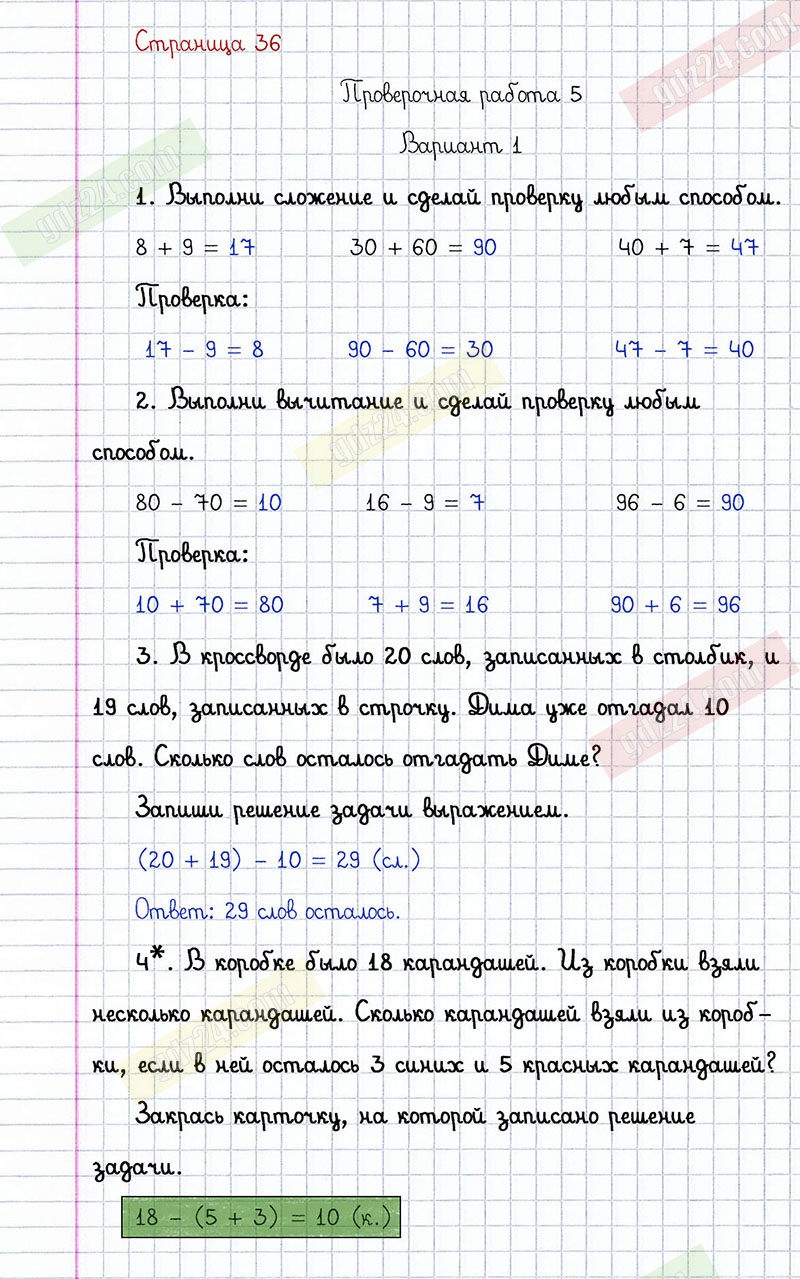 Страница 36
gdz24.com
Проверочная работа 5
Вариант 1
gdz24.com
1. Выполни сложение и сделай проверку любым способом.
8 + 9 = 17 30 + 60 = 90 40 + 7 = 47
Проверка:
17 - 9 = 8 90 - 60 = 30 47 - 7 = 40
2. Выполни вычитание и сделай проверку любым
gdz24.com
способом.
80 - 70 = 10 16 - 9 = 7 96 - 6 = 90
Проверка:
10 + 70 = 80 7 + 9 = 16 90 + 6 = 96
3. В кроссворде было 20 слов, записанных в столбик, и
19 слов, записанных в строчку. Дима уже отгадал 10
gdz24.com
слов. Сколько слов осталось отгадать Диме?
Запиши решение задачи выражением.
(20 + 19) - 10 = 29 (сл.)
Ответ: 29 слов осталось.
4*. В коробке было 18 карандашей. Из коробки взяли
несколько карандашей. Сколько карандашей взяли из короб-
gdz24.com
ки, если в ней осталось 3 синих и 5 красных карандашей?
Закрась карточку, на которой записано решение
задачи.
18 - (5 + 3) = 10 (к.)